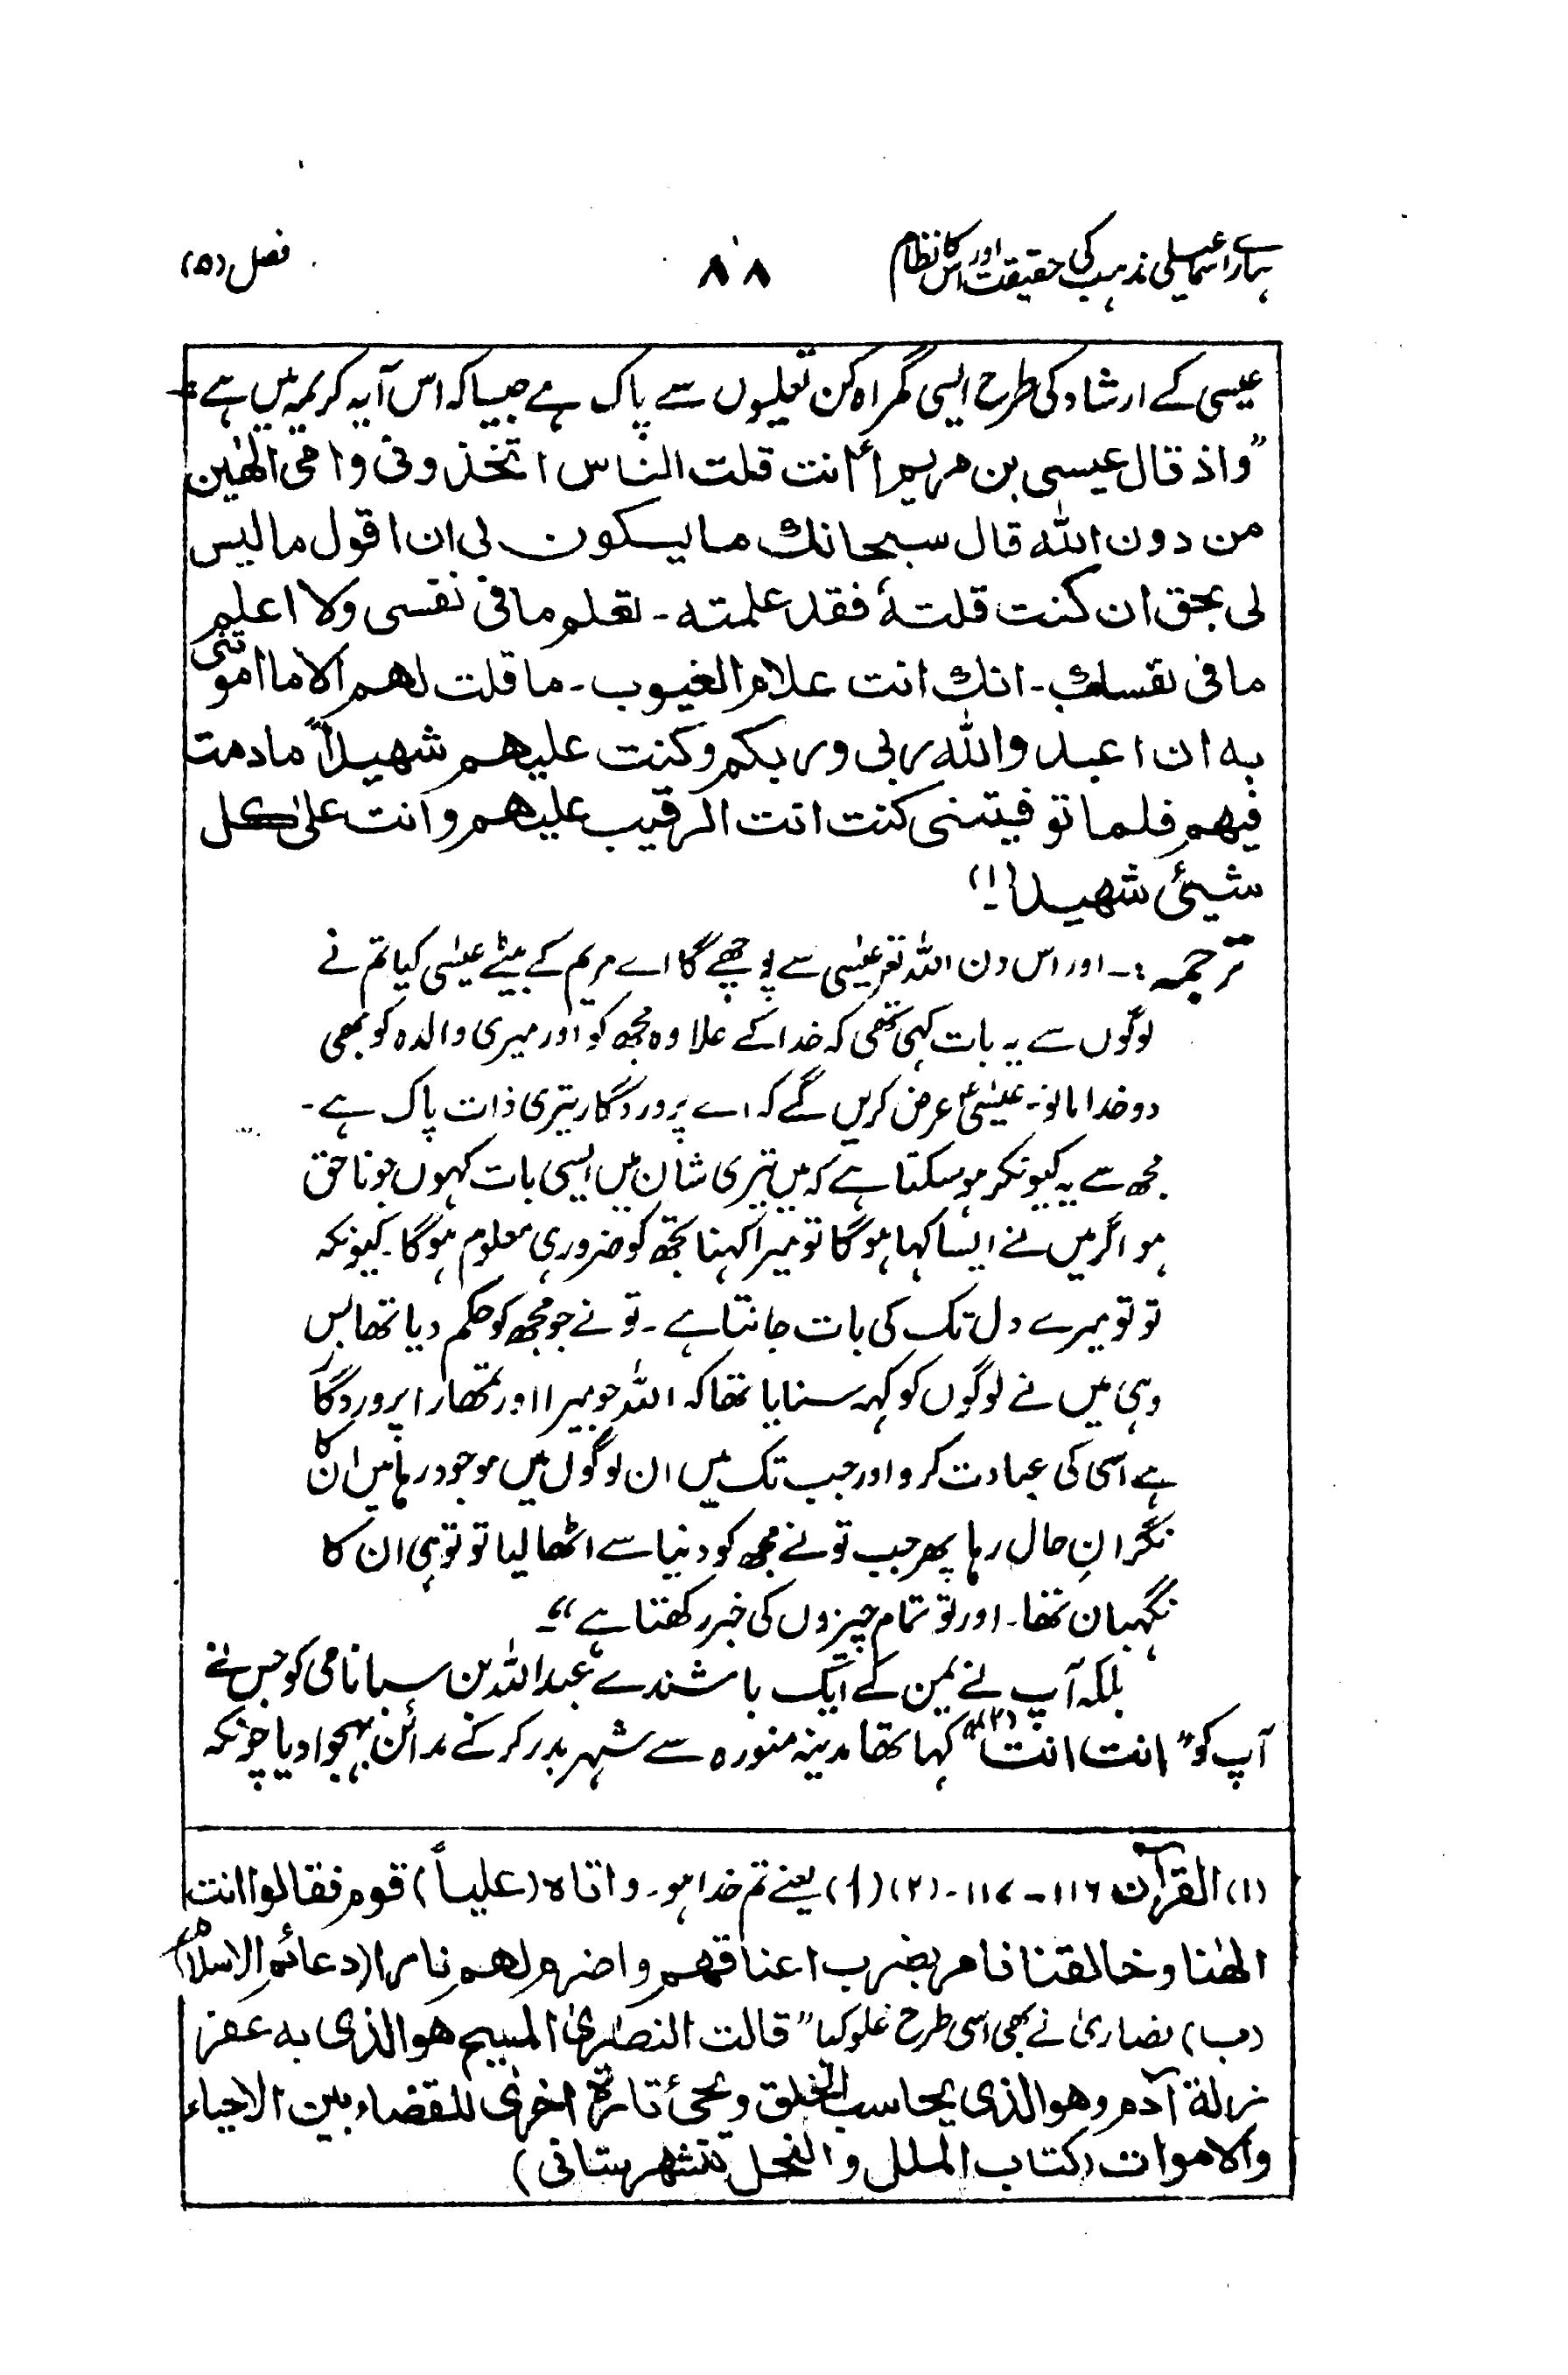 ہمارے اسماعیلی مذہب کی حقیقت اور اس کا نظام ۸۸ فصل (۵)
عیسی کے ارشاد کی طرح ایسی گمراہ کن تعلیوں سے پاک ہے جیسا کہ اس آیہ کریمہ میں ہے :-
”واذ قال عیسی بن مریم أانت قلت الناس اتخذونی وامی الٰھین
من دون اللہ قال سبحانك ما یکون لی ان اقول ما لیس
لی بحق ان کنت قلتہٗ فقد علمتہ - تعلم ما فی نفسی ولا اعلم
ما فی نفسك - انك انت علام الغیوب - ما قلت لھم الا ما امرتنی
بہ ان اعبدواللہ ربی وربکم وکنت علیھم شھیداً ما دمت
فیھم فلما توفیتنی کنت انت الرقیب علیھم وانت علیٰ کل
شیئی شھیدا (۱)
ترجمہ :- اور اس دن اللہ تعم عیسٰی سے پوچھے گا اے مریم کے بیٹے عیسٰی کیا تم نے
لوگوں سے یہ بات کہی تھی کہ خدا کے علاوہ مجھ کو اور میری والدہ کو بھی
دو خدا مانو - عیسٰیؑ عرض کریں گے کہ اے پروردگار تیری ذات پاک ہے -
مجھ سے یہ کیونکر ہو سکتا ہے کہ میں تیری شان میں ایسی بات کہوں جو ناحق
ہو اگر میں نے ایسا کہا ہو گا تو میرا کہنا تجھ کو ضرور ہی معلوم ہو گا - کیونکہ
تو تو میرے دل تک کی بات جانتا ہے - تو نے جو مجھ کو حکم دیا تھا بس
وہی میں نے لوگوں کو کہہ سنایا تھا کہ اللہ جو میرا اور تمھارا پروردگار
ہے اسی کی عبادت کرو اور جب تک میں ان لوگوں میں موجود رہا میں ان کا
نگرانِ حال رہا پھر جب تو نے مجھ کو دنیا سے اٹھا لیا تو تو ہی ان کا
نگہبان تھا - اور تو تمام چیزوں کی خبر رکھتا ہے“ -
بلکہ آپ نے یمن کے ایک باشندے عبداللہ بن سبا نامی کو جس نے
آپ کو ”انت انت“ (۲) کہا تھا مدینہ منورہ سے شہر بدر کر کے مدائن بھجوا دیا چونکہ
(۱) القرآن ۱۱۶ – ۱۱۷ - (۲) (ا) یعنے تم خدا ہو - واتاہ (علیاً) قوم فقالوا انت
الٰھنا وخالقنا فامر بضرب اعناقھم واضرم لھم نارا (دعائم الاسلام)
(ب) نصاریٰ نے بھی اسی طرح غلو کیا ”قالت النصاریٰ المسیح ھو الذی بہ غفر
زلة آدم وھو الذی یحاسب الخلق ویجئ تارة اخریٰ للقضاء بین الاحیاء
والاموات (کتاب الملل والنحل للشھرستانی)